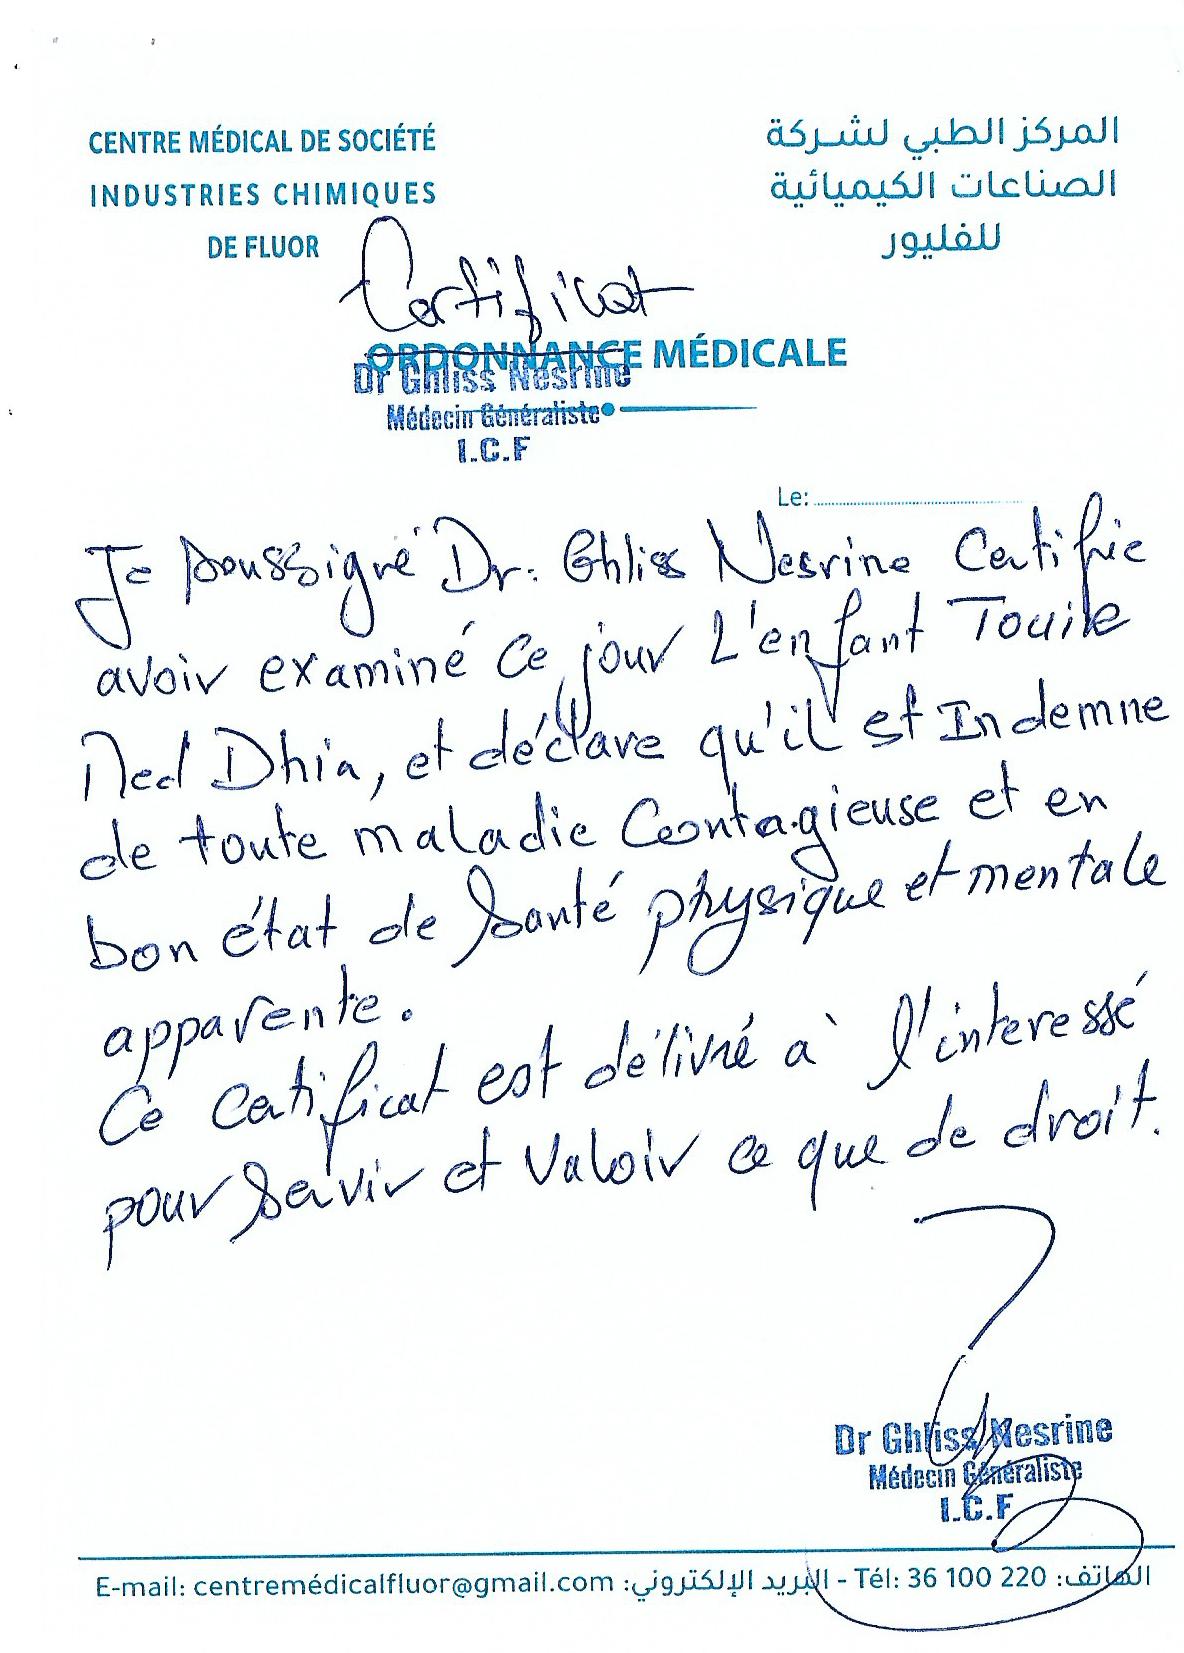 CENTRE MÉDICAL DE SOCIÉTÉ
INDUSTRIES CHIMIQUES
DE FLUOR
المركز الطبي لشركة
الصناعات الكيميائية
للفليور
Certificat
ORDONNANCE MÉDICALE
Dr Ghliss Nesrine
Médecin Généraliste
I.C.F
Le:
Je soussigné Dr: Ghliss Nesrine Certifie
avoir examiné ce jour L'enfant Touile
Med Dhia, et déclare qu'il est Indemne
de toute maladie Contagieuse et en
bon état de Santé physique et mentale
apparente.
Ce Certificat est délivré à l'interessé
pour Servir et Valoir ce que de droit.
Dr Ghliss Nesrine
Médecin Généraliste
I.C.F
E-mail: centremédicalfluor@gmail.com :البريد الإلكتروني - Tél: 36 100 220 :الهاتف